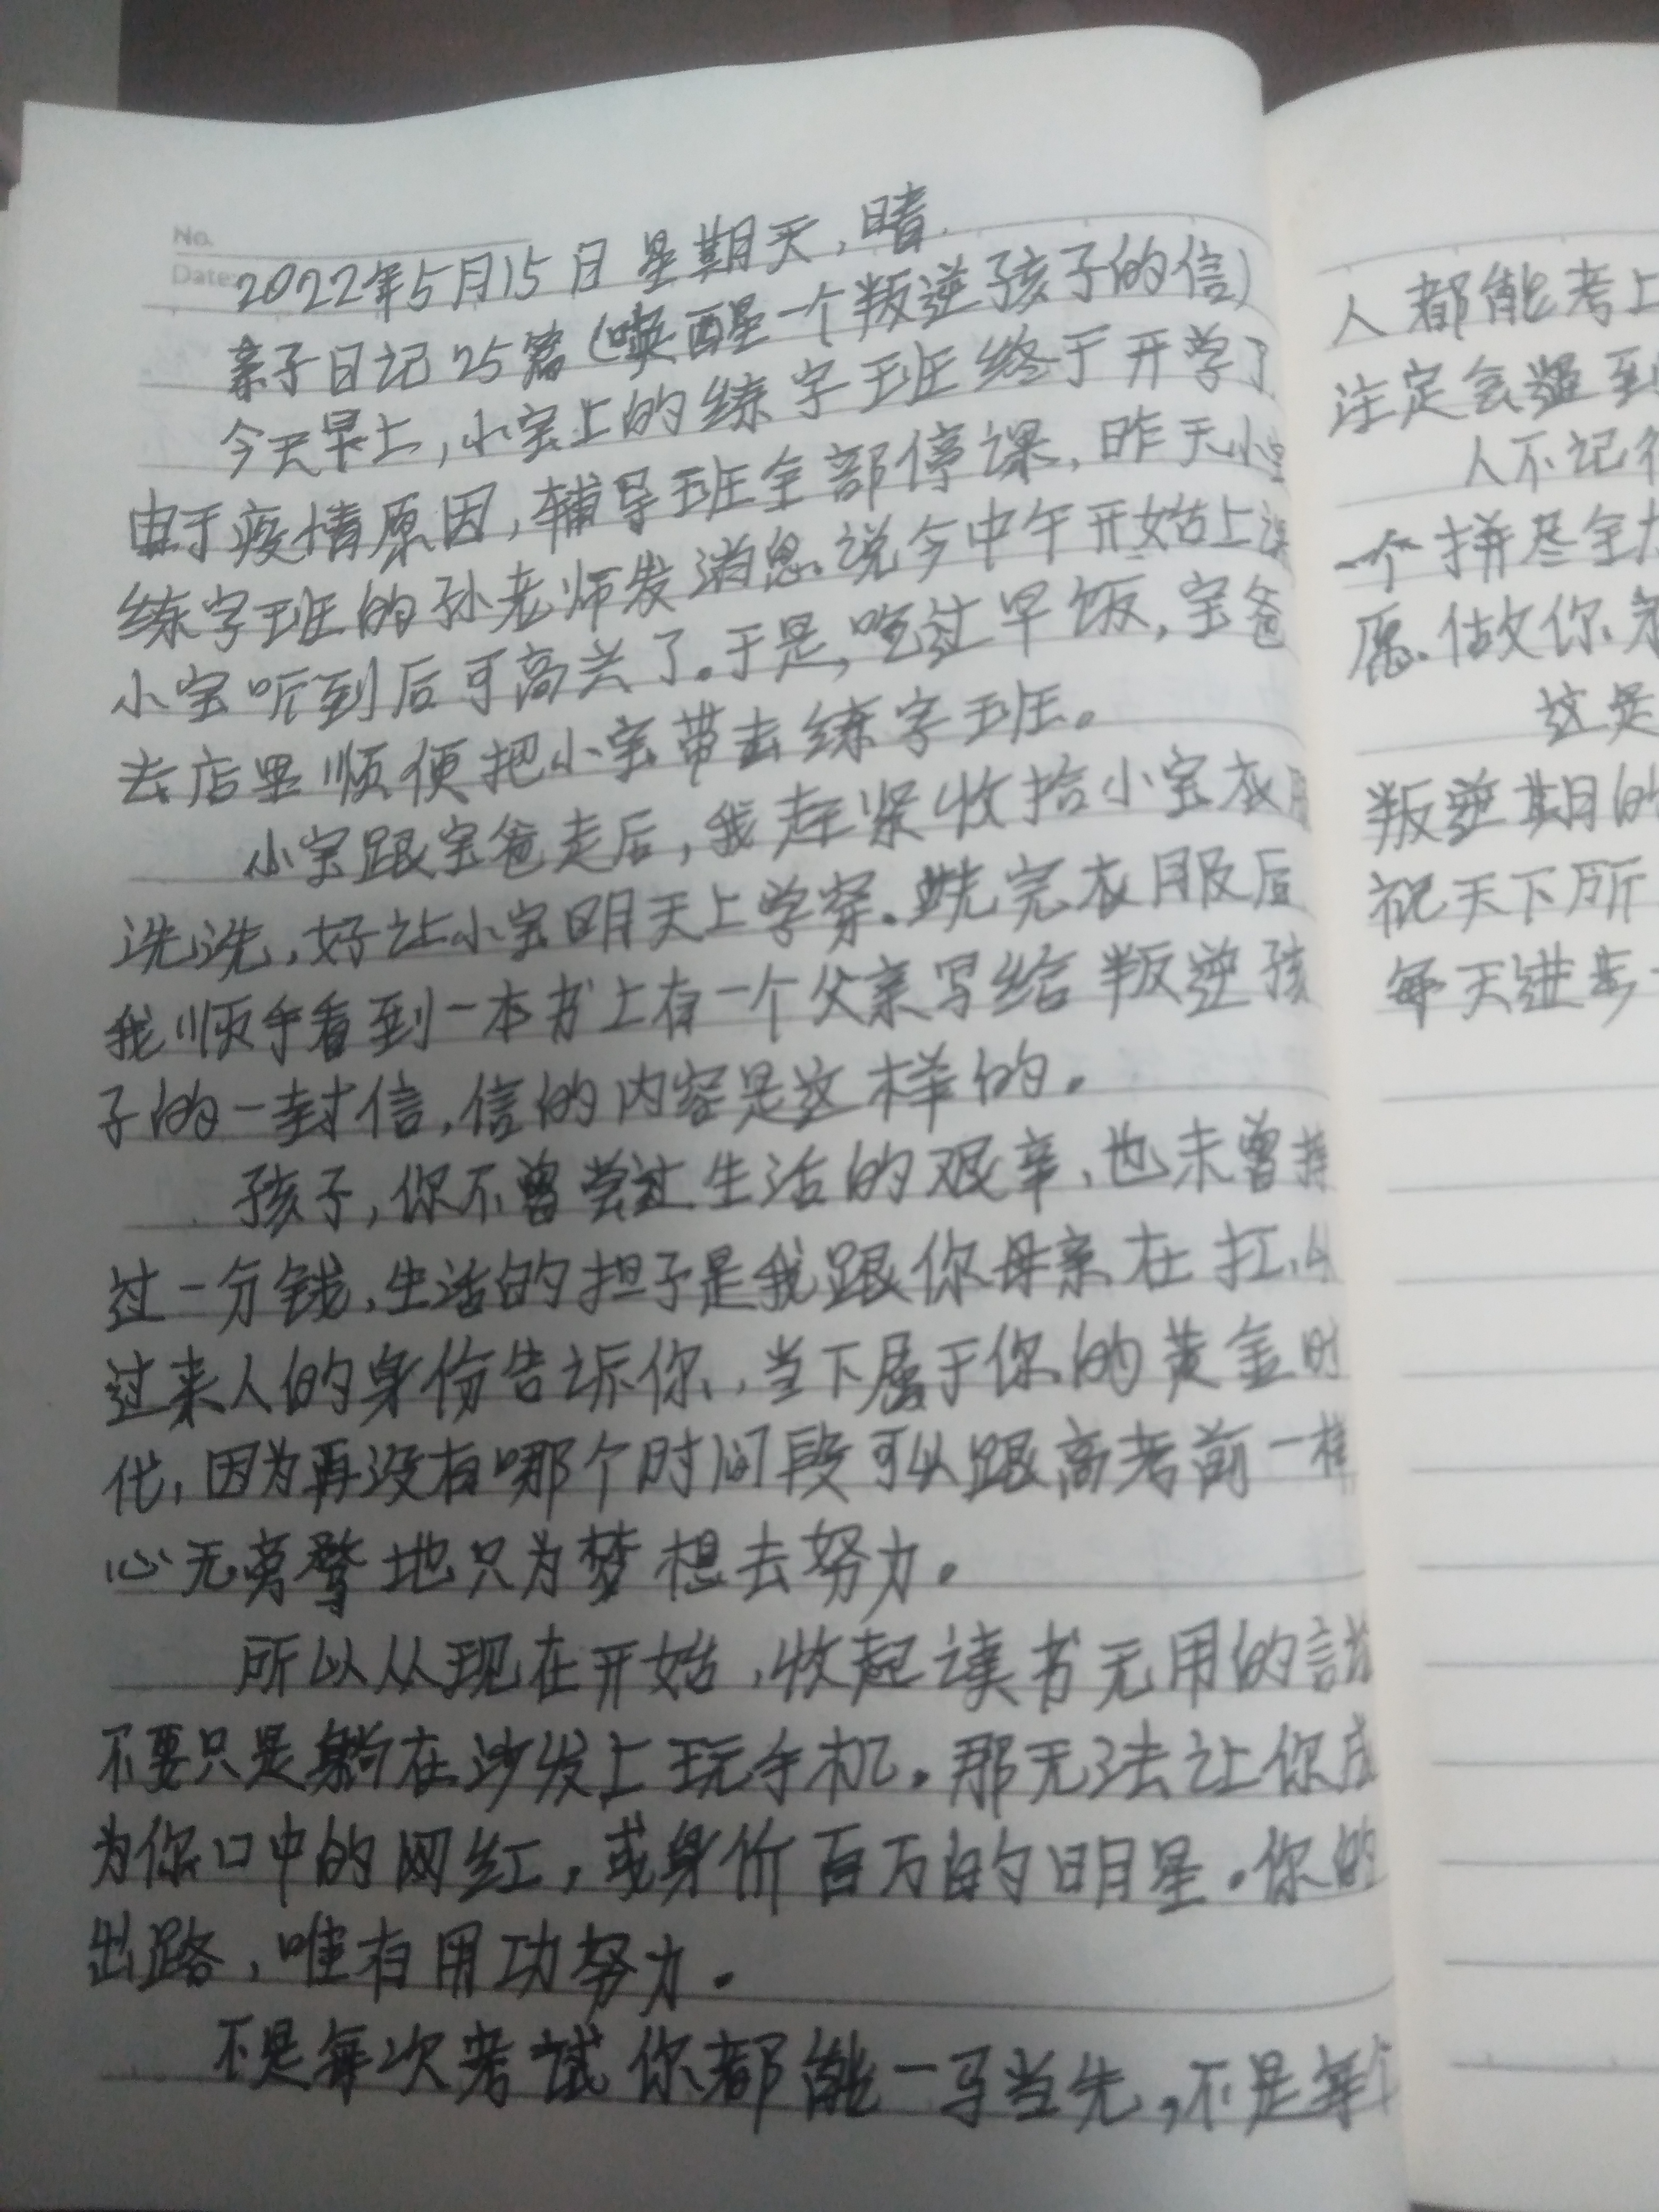 No.
Date:
2022年5月15日 星期天,晴.
亲子日记25篇(唤醒一个叛逆孩子的信)
今天早上,小宝上的练字班终于开学了
由于疫情原因,辅导班全部停课,昨天小
练字班的孙老师发消息.说今中午开始上
小宝听到后可高兴了.于是,吃过早饭,宝爸
去店里顺便把小宝带去练字班。
小宝跟宝爸走后,我赶紧收拾小宝衣
洗洗,好让小宝明天上学穿.洗完衣服后
我顺手看到一本书上有一个父亲写给叛逆孩
子的一封信,信的内容是这样的。
孩子,你不曾尝过生活的艰辛、也未曾
过一分钱,生活的担子是我跟你母亲在扛,
过来人的身份告诉你,当下属于你的黄金时
代,因为再没有哪个时间段可以跟高考前一样
心无旁骛地只为梦想去努力。
所以从现在开始,收起读书无用的
不要只是躺在沙发上玩手机。那无法让你成
为你口中的网红,或身价百万的明星。你的
出路,唯有用功努力。
不是每次考试你都能一马当先,不是每个
人都能考上
注定会遇到
人不记得
一个拼尽全
愿.做你
这是
叛逆期的
祝天下所
每天进步